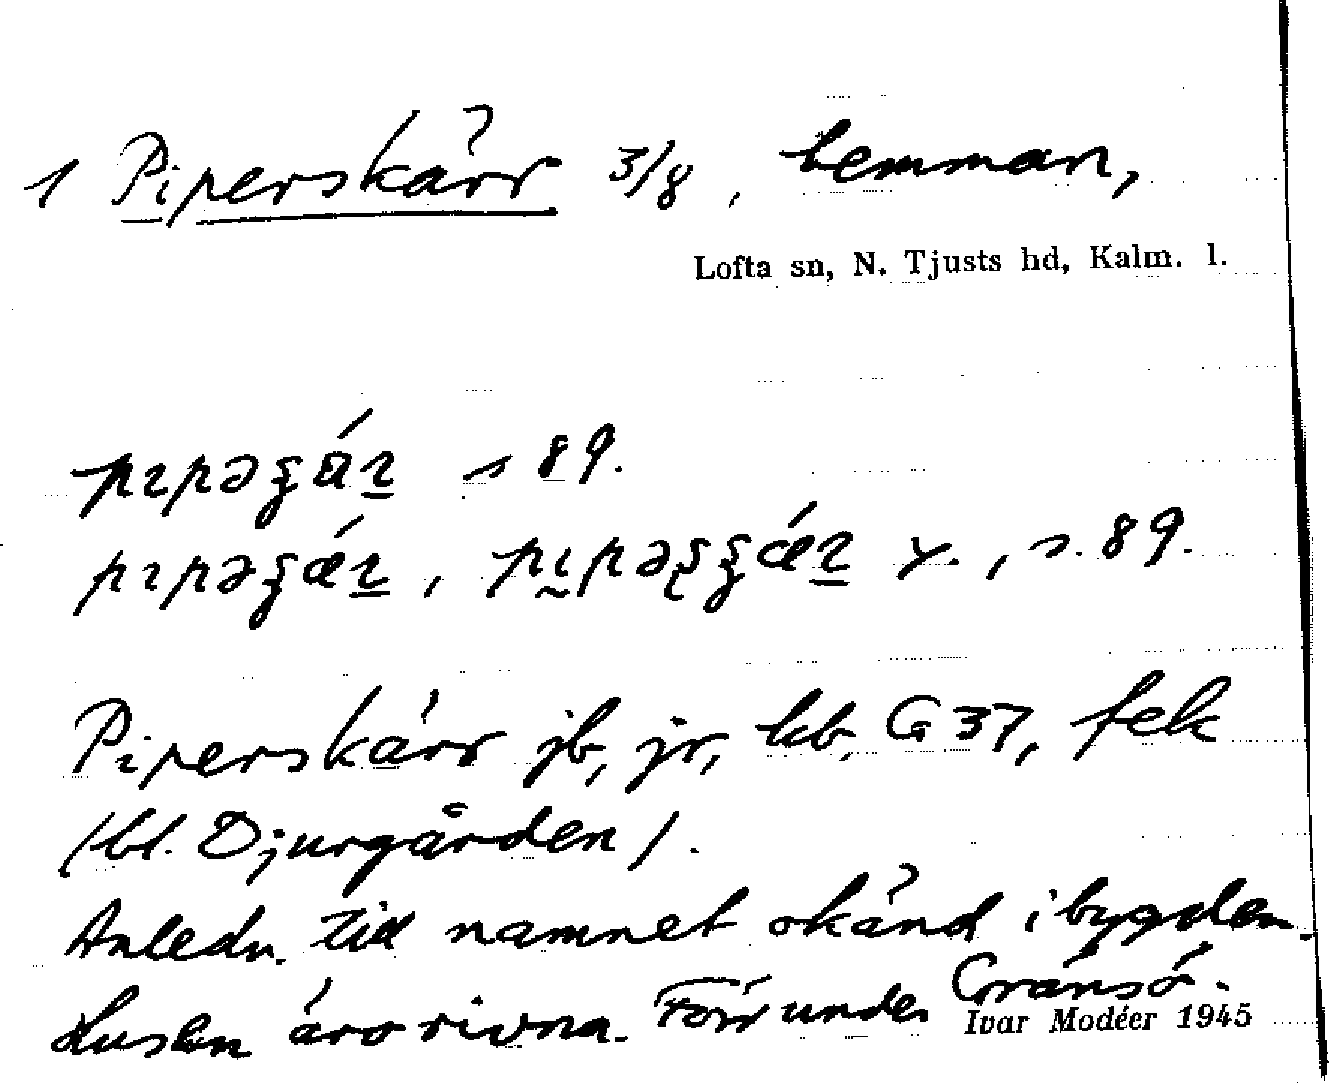 1 Piperskärr 3/8, hemman,
Lofta sn, N. Tjusts hd, Kalm. l.
s 89.
y., s. 89.
Piperskärr jb, jr, kb, G 37, fek
(bl. Djurgården).
Anledn. till namnet okänd i bygden.
Husen äro rivna. Förr under Gränsö.
Ivar Modéer 1945